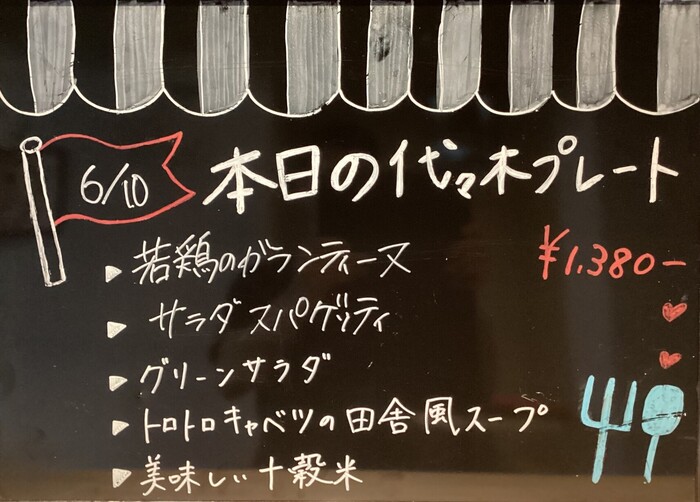 6/10
本日の代々木プレート
▷ 若鶏のガランティーヌ
¥1,380-
▷ サラダスパゲッティ
▷ グリーンサラダ
▷ トロトロキャベツの田舎風スープ
▷ 美味しい十穀米